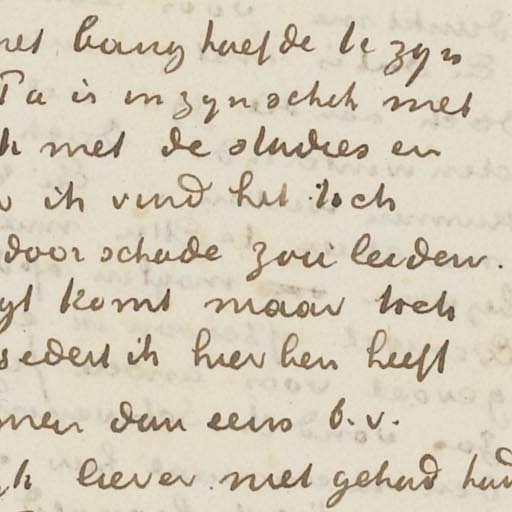 niet bang hoefde te zyn
Pa is in zyn schik met
k met de studies en
ik vind het toch
door schade zou leiden.
yt komt maar toch
sedert ik hier ben heeft
men dan eens b.v.
ik liever niet gehad had